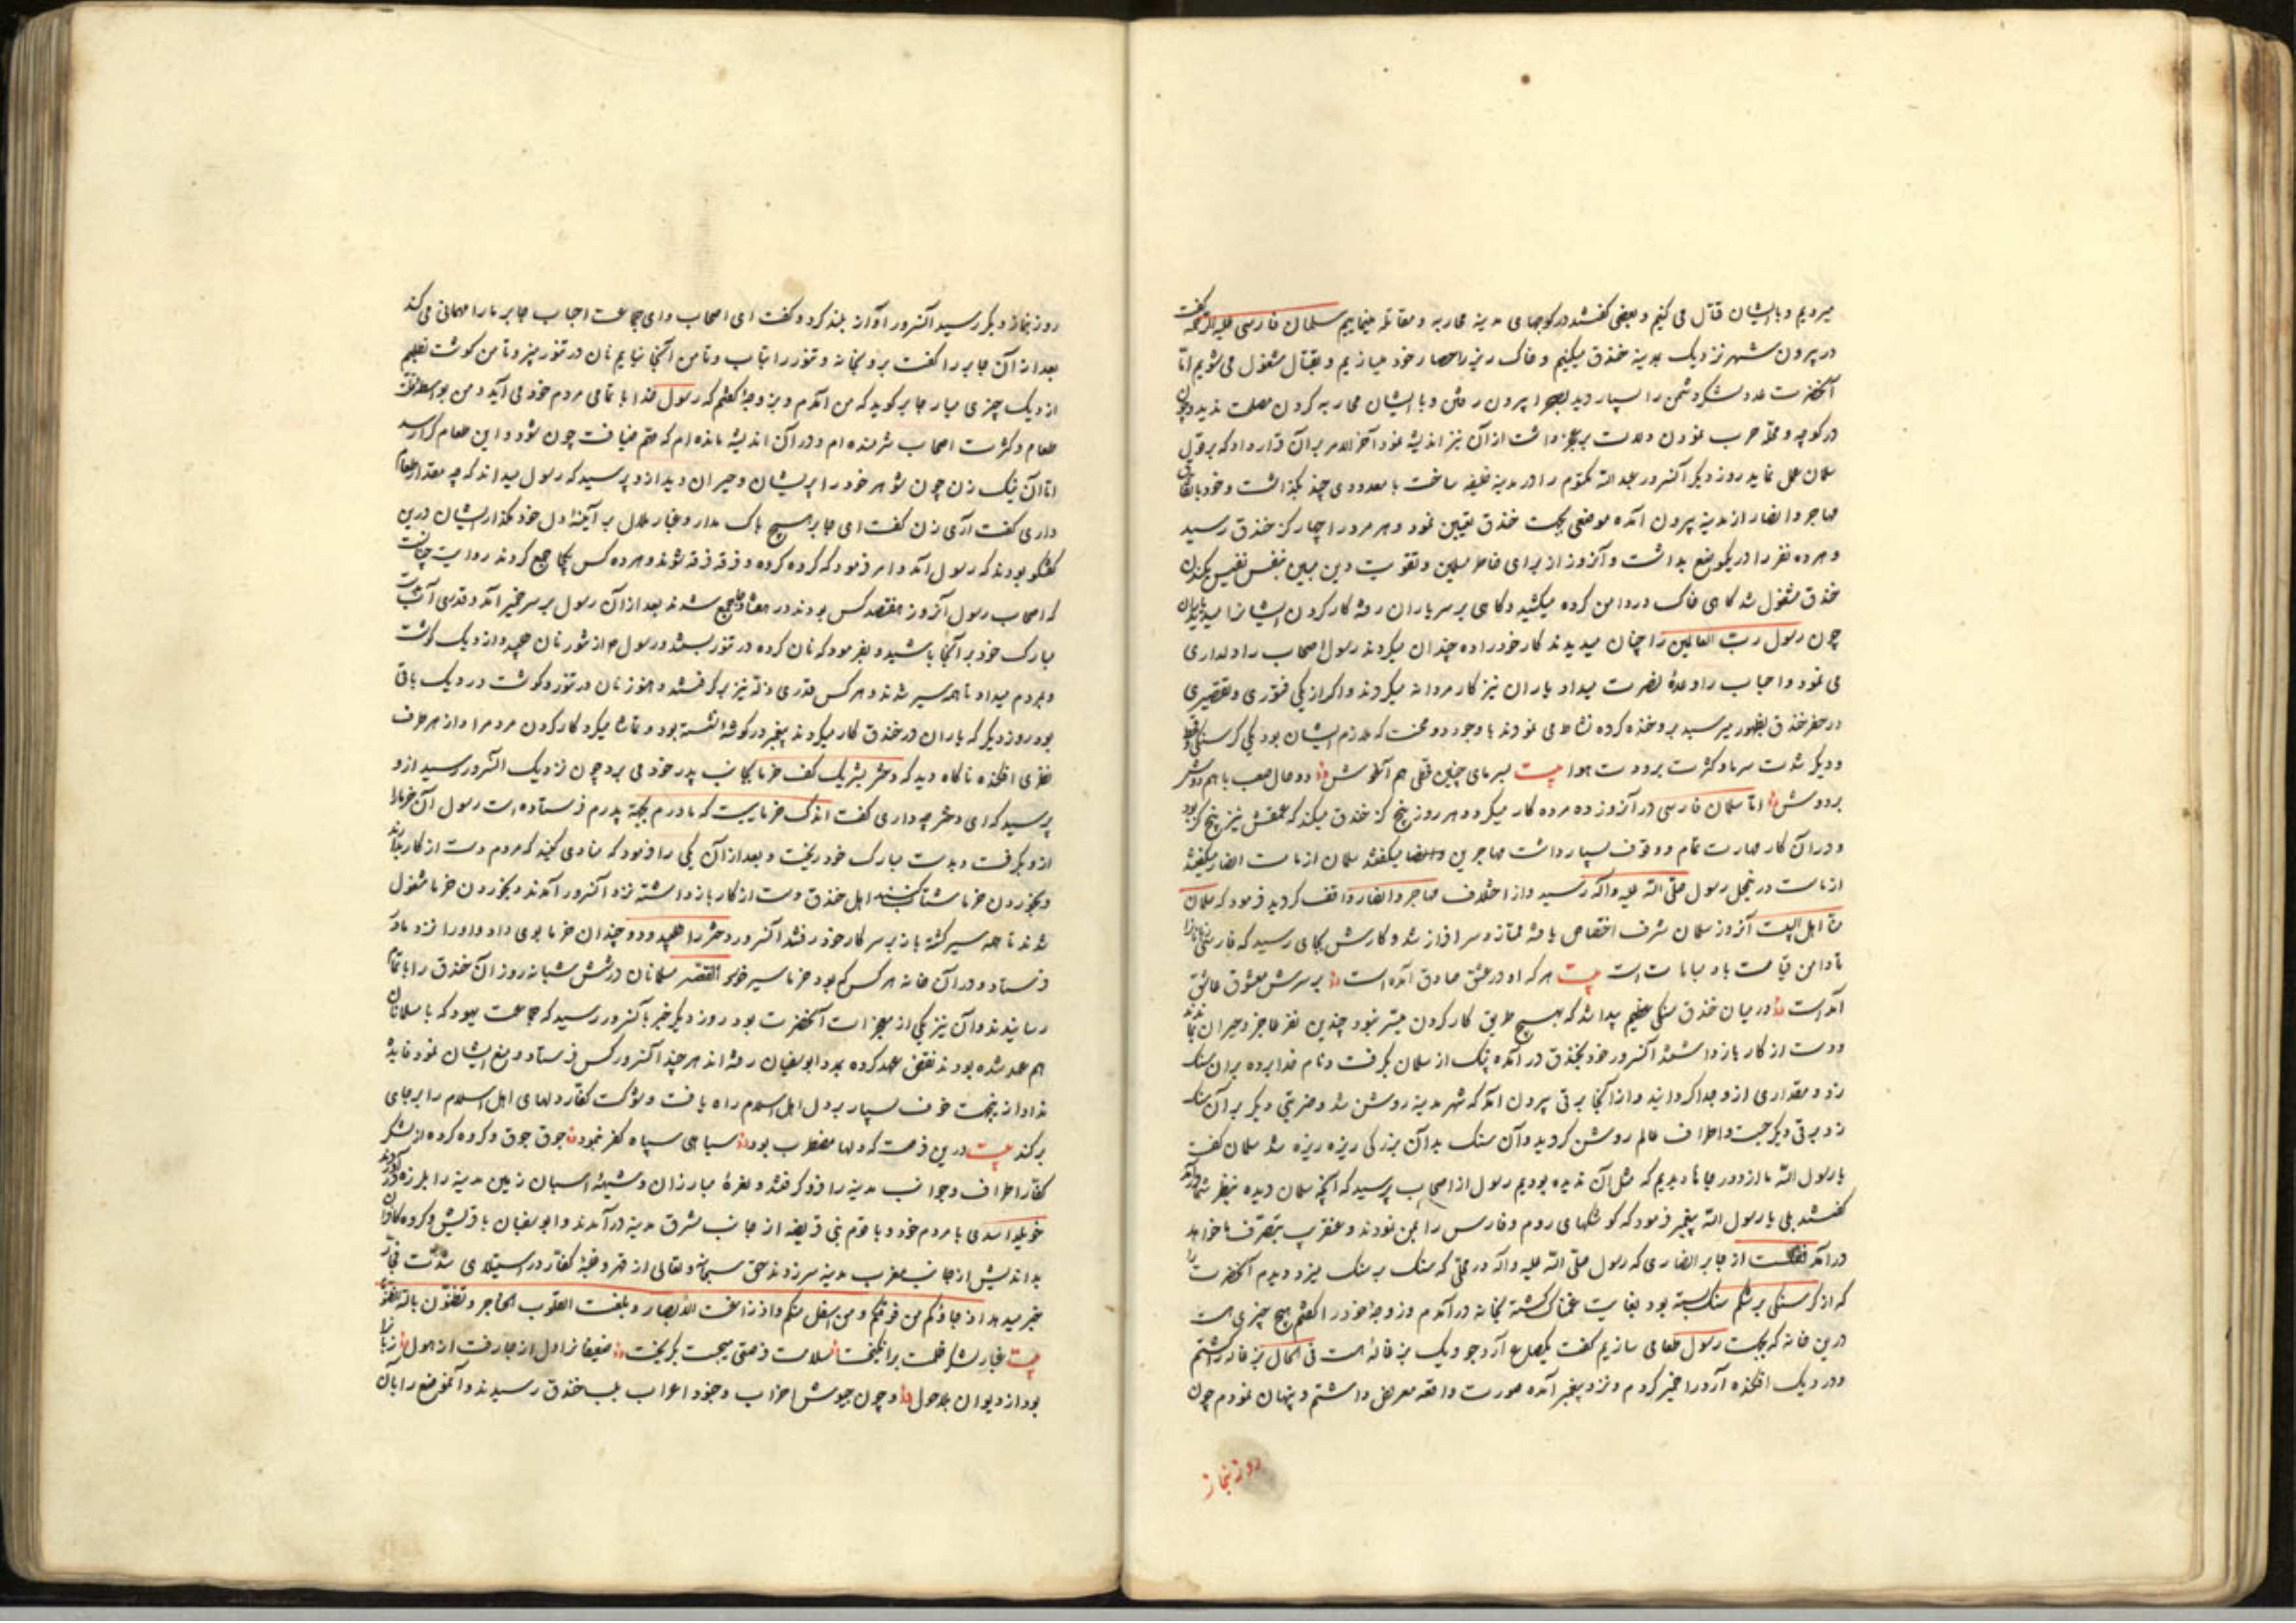 میرویم و با ایشان قتال می کنیم و بعضی گفتند در کوچهای مدینه محاربه و مقاتله مینماییم سلمان فارسی علیه الرحمه گفت
در بیرون شهر نزدیک مدینه خندق میکنیم و خاک ریز را حصار خود میسازیم و بقتال مشغول می شویم اما
آنحضرت عدد لشکر دشمن را بسیار دید بصحرا بیرون رفتن و با ایشان محاربه کردن مصلحت ندید و چون
در کوچه و محله حرب نمودن دلالت بر عجز داشت از آن نیز اندیشه نمود آخر الامر بر آن قرار داد که بر قول
سلمان عمل نماید روز دیگر آنسرور عبد الله مکتوم را در مدینه خلیفه ساخت با معدودی چند بگذاشت و خود باتفاق
مهاجر و انصار از مدینه بیرون آمده موضعی بجهت خندق تعیین نمود و هر مرد را چهار گز خندق رسید
و هر ده نفر را در یکموضع بداشت و آنروز از برای خاطر مسلمین و تقویت دین مبین بنفس نفیس بکندن
خندق مشغول شد گاهی خاک در دامن کرده میکشید و گاهی بر سر یاران رفته کار کردن ایشانرا میدید یاران
چون رسول رب العالمین را چنان میدیدند کار خود را ده چندان میکردند رسول اصحاب را دلداری
می نمود و احباب را وعدهٔ نصرت میداد یاران نیز کار مردانه میکردند و اگر از یکی فتوری و تقصیری
در حفر خندق بظهور میرسید برو خنده کرده نشاط می نمودند با وجود دو محنت که ملازم ایشان بود یکی گرسنگی و قحط
و دیگر شدت سرما و کثرت برودت هوا بیت سرمای چنین قحطی هم آغوش دو حال صعب با هم دوش
بر دوش اما سلمان فارسی در آنروز ده مرده کار میکرد و هر روز پنج گز خندق میکند که عمقش نیز پنج گز بود
و در آن کار مهارت تمام و وقوف بسیار داشت مهاجرین و انصار میگفتند سلمان از ماست انصار میگفتند
از ماست در نجیل رسول صلی الله علیه وآله رسید و از اختلاف مهاجر و انصار واقف گردید فرمود که سلمان
منا اهل البیت آنروز سلمان شرف اختصاص یافته ممتاز و سرافراز شد و کارش بجای رسید که فارسیانرا
تا دامن قیامت باو مباهاتست بیت هر که او در عشق صادق آمده است بر سرش معشوق عاشق
آمده است در میان خندق سنگی عظیم پیدا شد که بهیچ طریق کار کردن میسر نبود چندین نفر عاجز و حیران بماندند
و دست از کار بازداشتند آنسرور خود بخندق در آمده پتک از سلمان بگرفت و نام خدا برده بر آن سنک
زد و مقداری ازو جدا گردانید و از آنجا برقی بیرون آمد که شهر مدینه روشن شد و ضربتی دیگر بر آن سنک
زد برقی دیگر جست و اطراف عالم روشن گردید و آن سنک بدان بزرگی ریزه ریزه شد سلمان گفت
یا رسول الله ما از دور جاها دیدیم که مثل آن ندیده بودیم رسول از اصحاب پرسید که آنچه سلمان دیده بنظر شما در آمد
گفتند بلی یا رسول الله پیغمبر فرمود که کوشکهای روم و فارس را بمن نمودند و عنقریب بتصرف ما خواهد
در آمد نقلست از جابر انصاری که رسول صلی الله علیه وآله در محلی که سنک بر سنک میزد دیدم آنحضرت را
که از گرسنگی بر شکم سنک بسته بود بغایت غمناک گشته بخانه در آمدم و زوجهٔ خود را گفتم هیچ چیزی هست
درین خانه که بجهت رسول طعامی سازیم گفت یکصاع آرد جو و یک بزغاله است فی الحال بزغاله را کشتم
و در دیک افکنده آرد را خمیر کردم و نزد پیغمبر آمده صورت واقعه معروض داشتم و پنهان نمودم چون
روز نماز
روز نماز دیگر رسید آنسرور آواز بلند کرد و گفت ای اصحاب و ای جماعت احباب جابر ما را مهمانی می کند
بعد از آن جابر را گفت برو بخانه و تنور را بتاب و تا من آنجا نیایم نان در تنور مپز و تا من گوشت نطلبم
از دیک چیزی میار جابر گوید که من آمدم و بزوجه گفتم که رسول خدا با تمامی مردم خود می آید و من بواسطه قلت
طعام و کثرت اصحاب شرمنده ام و در آن اندیشه مانده ام که ختم ضیافت چون شود و این طعام کرا رسد
اما آن نیک زن چون شوهر خود را پریشان و حیران دید ازو پرسید که رسول میداند که چه مقدار طعام
داری گفت آری زن گفت ای جابر هیچ باک مدار و غبار ملال بر آینهٔ دل خود مگذار ایشان درین
گفتگو بودند که رسول آمد و امر فرمود که گروه گروه و فرقه فرقه شوند و هر ده کس یکجا جمع گردند روایت چنانست
که اصحاب رسول آنروز هفتصد کس بودند در هفتاد جا جمع شدند بعد از آن رسول بر سر خمیر آمد و قدری آب دست
مبارک خود بر آنجا پاشید و بفرمود که نان کرده در تنور بستند و رسول ۴ از تنور نان میچید و از دیک گوشت
و بمردم میداد تا همه سیر شدند و هر کس قدری ذله نیز برگرفتند و هنوز نان در تنور و گوشت در دیک باقی
بود روز دیگر که یاران در خندق کار میکردند پیغمبر در گوشهٔ نشسته بود و تماشا میکرد کار کردن مردم را و از هر طرف
نظری افکنده ناگاه دید که دختر بشر یک کف خرما بجانب پدر خود می برد چون نزدیک آنسرور رسید ازو
پرسید که ای دختر چه داری گفت اندک خرماییست که مادرم بجهة پدرم فرستاده است رسول آن خرما را
ازو بگرفت و بدست مبارک خود ریخت و بعد از آن یکی را فرمود که منادی کنید که مردم دست از کار بدارند
و بخوردن خرما شتاب کنند اهل خندق دست از کار بازداشته نزد آنسرور آمدند و بخوردن خرما مشغول
شدند تا همه سیر گشته باز بر سر کار خود رفتند آنسرور دختر را طلبید و دو چندان خرما بوی داد و او را نزد مادر
فرستاد و در آن خانه هر کس که بود خرما سیر خورد القصه مسلمانان در شش شبانه روز آن خندق را باتمام
رسانیدند و آن نیز یکی از معجزات آنحضرت بود روز دیگر خبر بآنسرور رسید که جماعت یهود که با مسلمانان
هم عهد شده بودند نقض عهد کرده بمدد ابوسفیان رفته اند هر چند آنسرور کس فرستاد و منع ایشان نمود فایده
نداد ازینجهت خوف بسیار بر دل اهل اسلام راه یافت و شوکت کفار دلهای اهل اسلام را بر جای
برکند بیت درین فرصت که دلها مضطرب بود سیاهی سپاه کفر بنمود جوق جوق و گروه گروه از لشکر
کفار اطراف و جوانب مدینه را فرو گرفتند و نعرهٔ مبارزان و شیههٔ اسبان زمین مدینه را بلرزه در آوردند
خویلد اسدی با مردم خود و با قوم بنی قریظه از جانب شرق مدینه در آمدند و ابوسفیان با قریش و گروه کافران
بداندیش از جانب مغرب مدینه سر زدند حق سبحانه و تعالی از قهر و غلبهٔ کفار در استیلای شدت فجار
خبر میدهد اذ جاؤکم من فوقکم و من اسفل منکم و اذ زاغت الابصار و بلغت القلوب الحناجر و تظنون بالله الظنونا
بیت غبار لشکر ظلمت برانگیخت سلامت فرصتی میجست بگریخت ضعیفانرا دل از جا رفت از هول زبانها
بود از دیوان بلاحول و چون جیوش احزاب و جنود اعراب بلب خندق رسیدند و آنموضع را بان